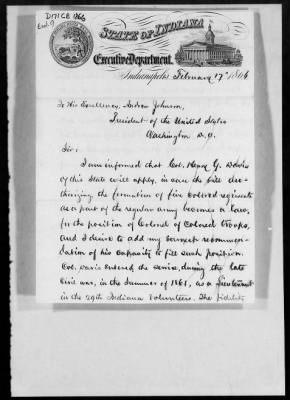 D171 CB 1866
Encl. 9
STATE OF INDIANA
Executive Department.
Indianapolis February 17th 1866
To His Excellency, Andrew Johnson,
President of the United States
Washington D.C.
Sir:
I am informed that Col. Henry G. Davis
of this State will apply, in case the bill au-
thorizing the formation of five colored regiments
as a part of the regular army becomes a law,
for the position of Colonel of Colored troops,
and I desire to add my earnest recommen-
dation of his capacity to fill such position.
Col. Davis entered the service, during the late
Civil war, in the Summer of 1861, as a Lieutenant
in the 29th Indiana Volunteers. The fidelity